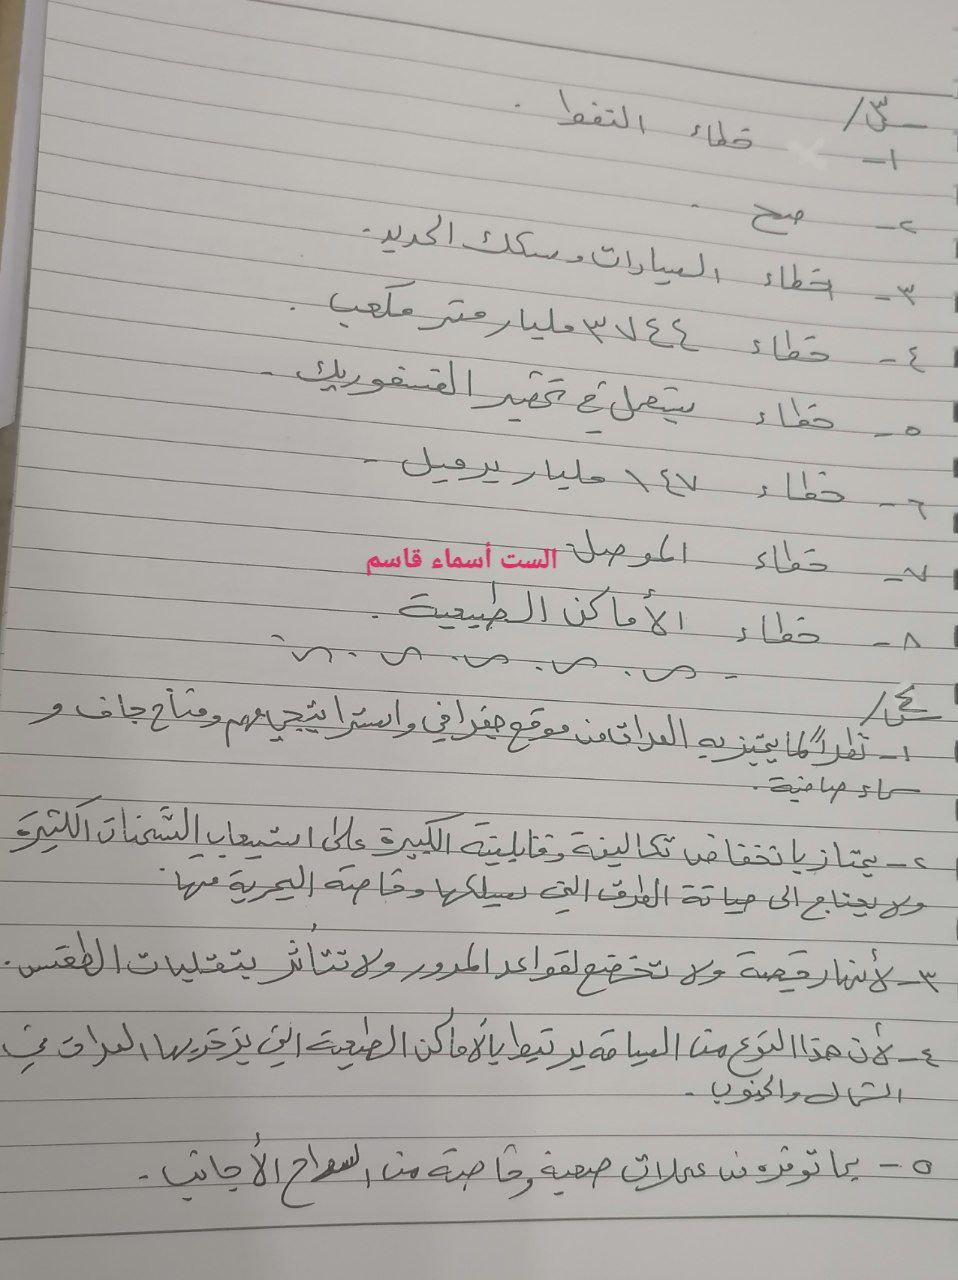 س٣/
١- خطاء النفط .
٢- صح .
٣- خطاء السيارات وسكك الحديد.
٤- خطاء ٣٧٤٤ مليار متر مكعب .
٥- خطاء يستعمل في تحضير الفسفوريك -
٦- خطاء ١٤٧ مليار برميل -
٧- خطاء الموصل
الست أسماء قاسم
٨- خطاء الأماكن الطبيعية .
س٤/
١- نظراً لما يتميز به العراق من موقع جغرافي واستراتيجي مهم ومناخ جاف و
سماء صافية .
٢- يمتاز بانخفاض تكاليفة وقابليته الكبيرة على استيعاب الشحنات الكثيرة
ولا يحتاج الى صيانة الطرق التي يسلكها وخاصة البحرية منها.
٣- لأنها رخيصة ولا تخضع لقواعد المرور ولا تتأثر بتقلبات الطقس .
٤- لأن هذا النوع من السياحة يرتبط بالأماكن الطبيعية التي يزخر بها العراق في
الشمال والجنوب -
٥- بما توفره من عملات صعبة وخاصة من السواح الأجانب -